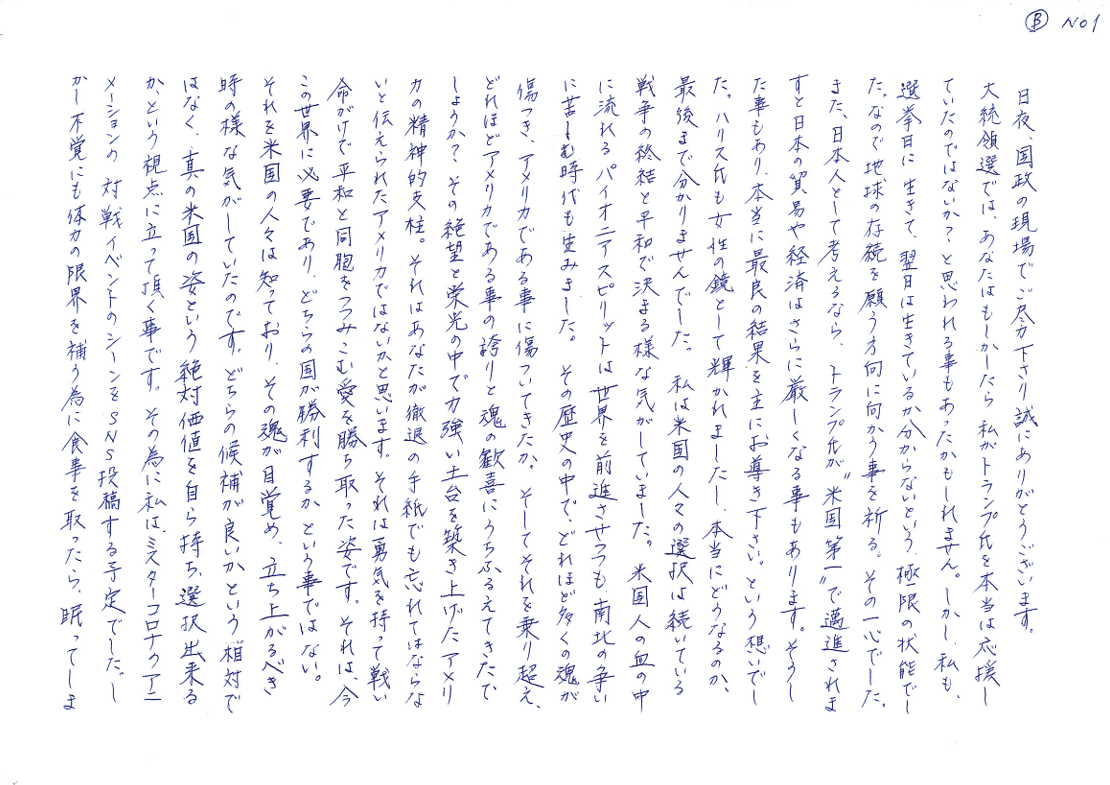 Ⓑ No1
日夜、国政の現場でご尽力下さり誠にありがとうございます。
大統領選では、あなたはもしかしたら私がトランプ氏を本当は応援し
ていたのではないか？と思われる事もあったかもしれません。しかし、私も、
選挙日に生きて、翌日は生きているか分からないという、極限の状態でし
た。なので地球の存続を願う方向に向かう事を祈る。その一心でした。
また、日本人として考えるなら、トランプ氏が〝米国第一〟で邁進されま
すと日本の貿易や経済はさらに厳しくなる事もあります。そうし
た事もあり、本当に最良の結果を主にお導き下さい。という想いでし
た。ハリス氏も女性の鏡として輝かれましたし、本当にどうなるのか、
最後まで分かりませんでした。私は米国の人々の選択は続いている
戦争の終結と平和で決まる様な気がしていました。米国人の血の中
に流れるパイオニアスピリットは世界を前進させつつも、南北の争い
に苦しむ時代も生みました。その歴史の中で、どれほど多くの魂が
傷つき、アメリカである事に傷ついてきたか。そしてそれを乗り超え、
どれほどアメリカである事の誇りと魂の歓喜にうちふるえてきたで
しょうか？その絶望と栄光の中で力強い土台を築き上げたアメリ
カの精神的支柱。それはあなたが撤退の手紙でも忘れてはならな
いと伝えられたアメリカではないかと思います。それは勇気を持って戦い
命がけで平和と同胞をつつみこむ愛を勝ち取った姿です。それは、今
この世界に必要であり、どちらの国が勝利するかという事ではない。
それを米国の人々は知っており、その魂が目覚め、立ち上がるべき
時の様な気がしていたのです。どちらの候補が良いかという相対で
はなく、真の米国の姿という絶対価値を自ら持ち、選択出来る
か、という視点に立って頂く事です。その為に私は、ミスターコロナのアニ
メーションの対戦イベントのシーンをSNS投稿する予定でした。し
かし不覚にも体力の限界を補う為に食事を取ったら、眠ってしま